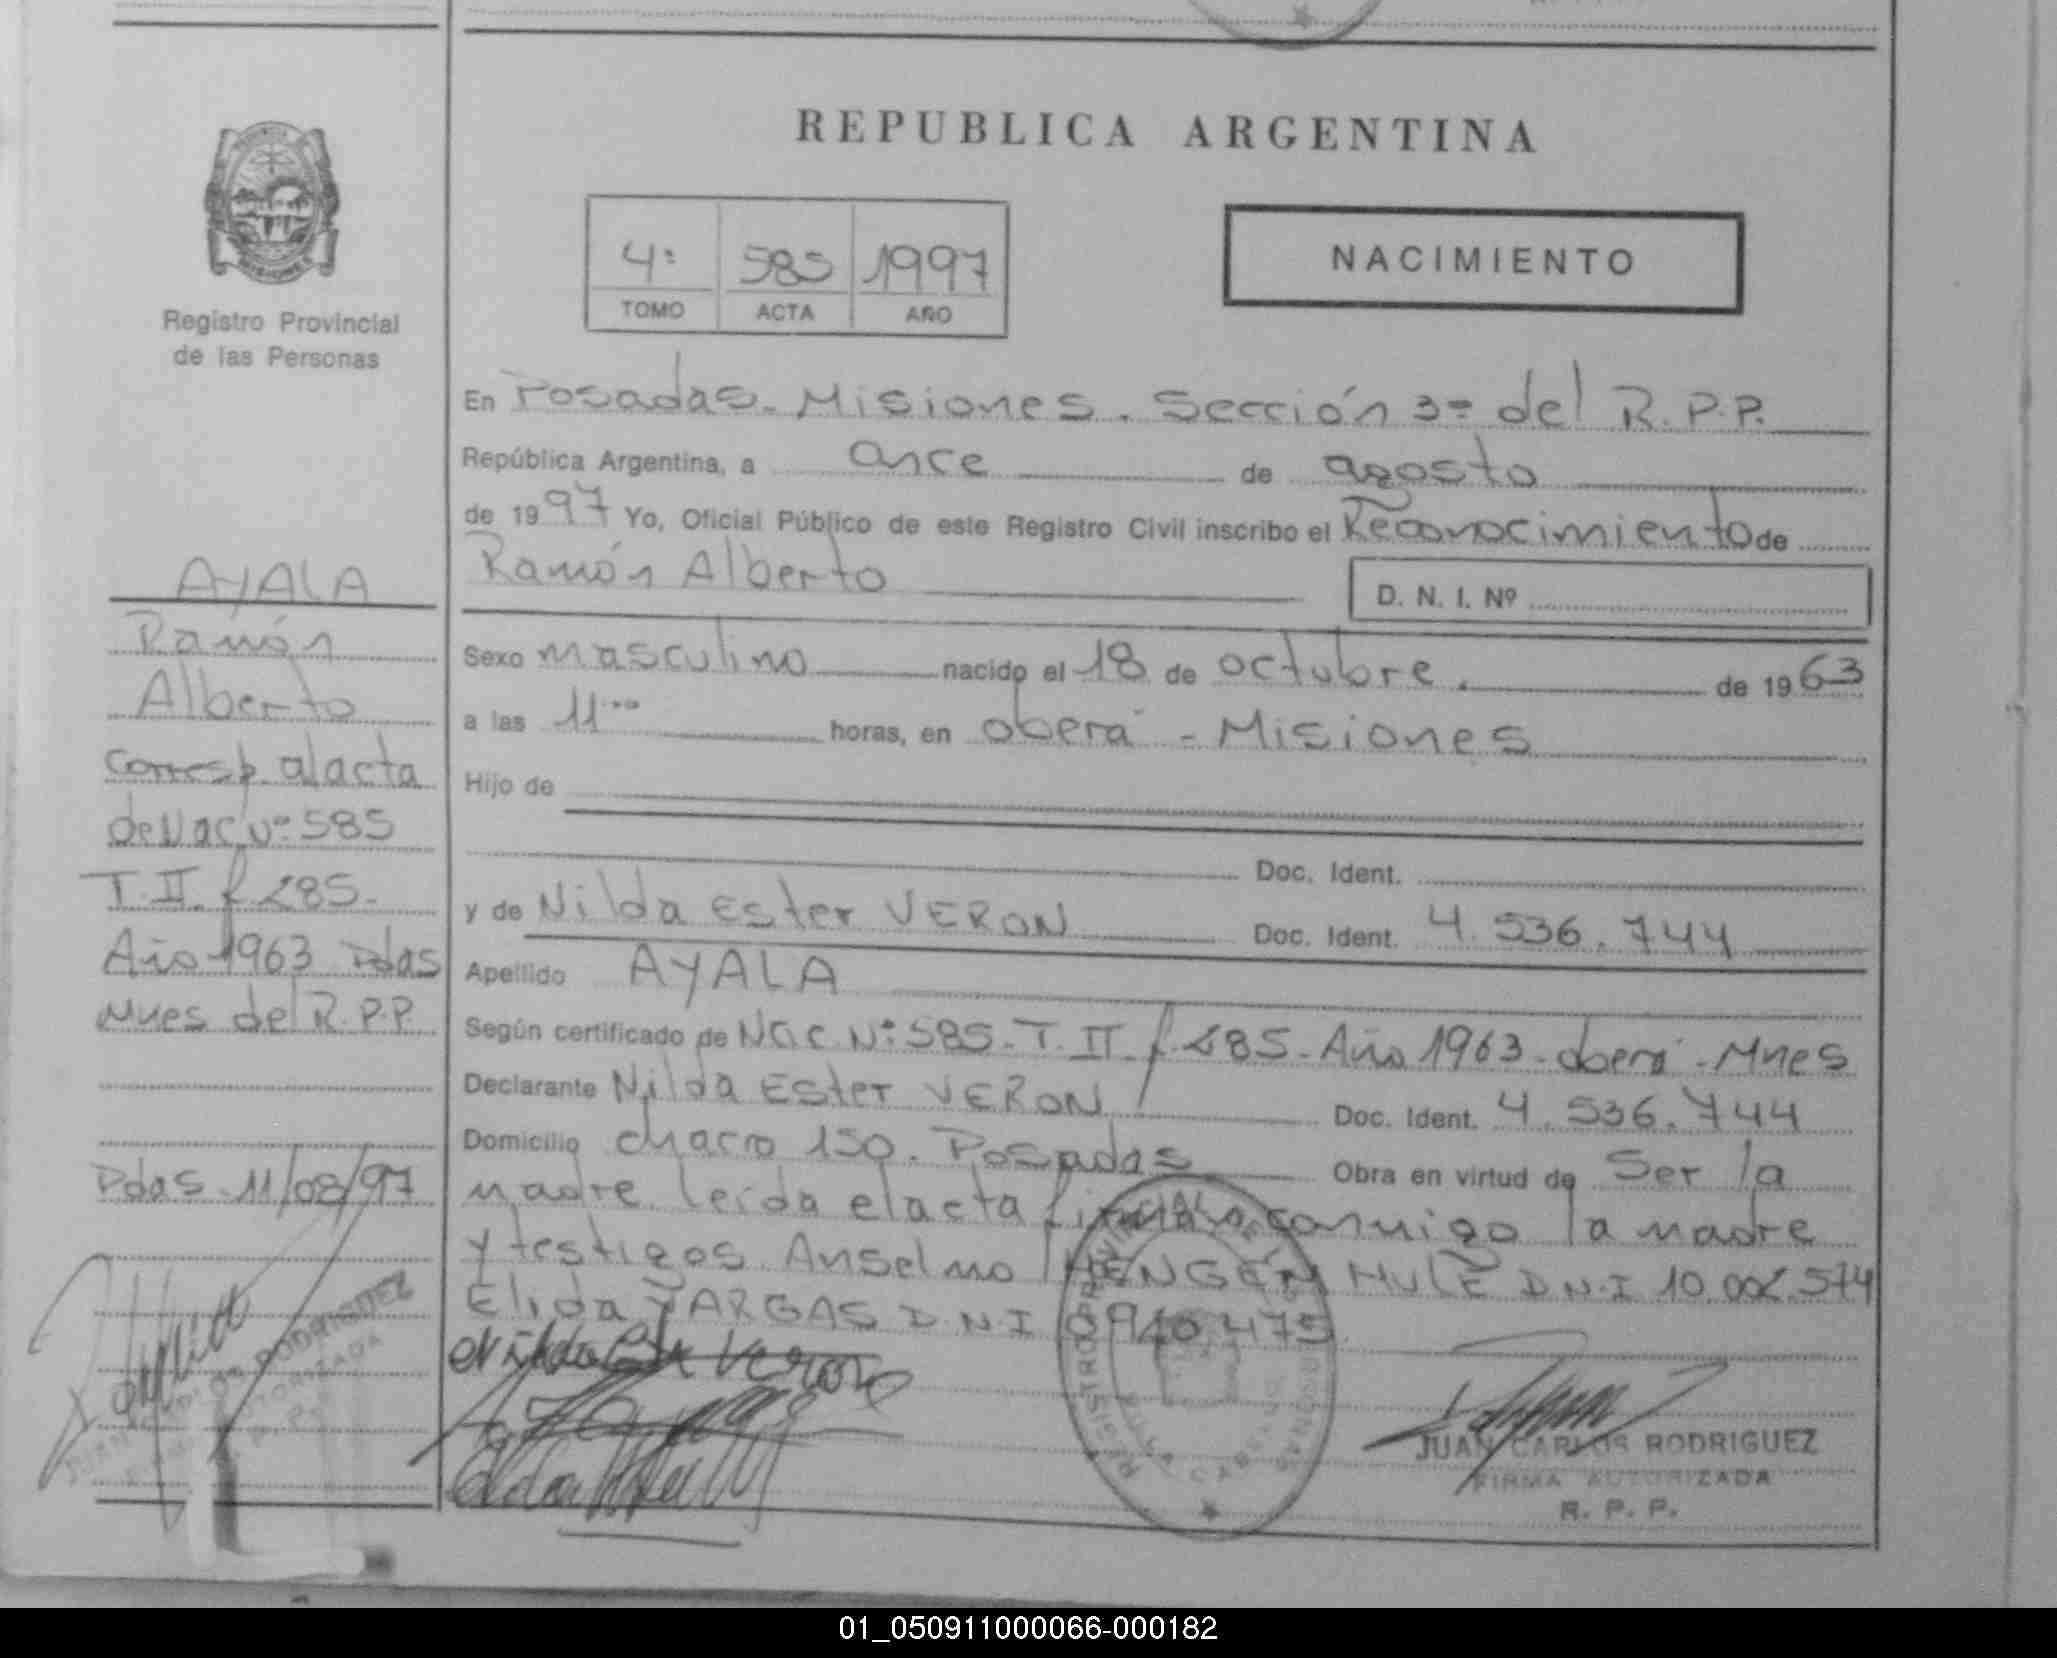 REPUBLICA ARGENTINA
Registro Provincial
de las Personas
4º 585 1997
TOMO ACTA AÑO
NACIMIENTO
En Posadas - Misiones. Sección 3ª del R.P.P.
República Argentina, a once de agosto
de 1997 Yo, Oficial Público de este Registro Civil inscribo el Reconocimiento de
Ramón Alberto
D. N. I. Nº
Sexo masculino nacido el 18 de octubre. de 1963
a las 11 horas, en oberá - Misiones
Hijo de
Doc. Ident.
y de Nilda Ester VERON Doc. Ident. 4.536.744
Apellido AYALA
Según certificado de Nac. Nº 585 - T. II f. 285 - Año 1963 - oberá - Mnes
Declarante Nilda Ester VERON Doc. Ident. 4.536.744
Domicilio chacra 150. Posadas Obra en virtud de Ser la
madre leída el acta conmigo la madre
y testigos Anselmo D.N.I 10.002.574
Elida VARGAS D.N.I
AYALA
Ramón
Alberto
Corresp. al acta
de Nac. Nº 585
T. II f 285.
Año 1963 Pdas
Mnes del R.P.P.
Pdas. 11/08/97
JUAN CARLOS RODRIGUEZ
FIRMA AUTORIZADA
R. P. P.
JUAN CARLOS RODRIGUEZ
FIRMA AUTORIZADA
R. P. P.
01_050911000066-000182